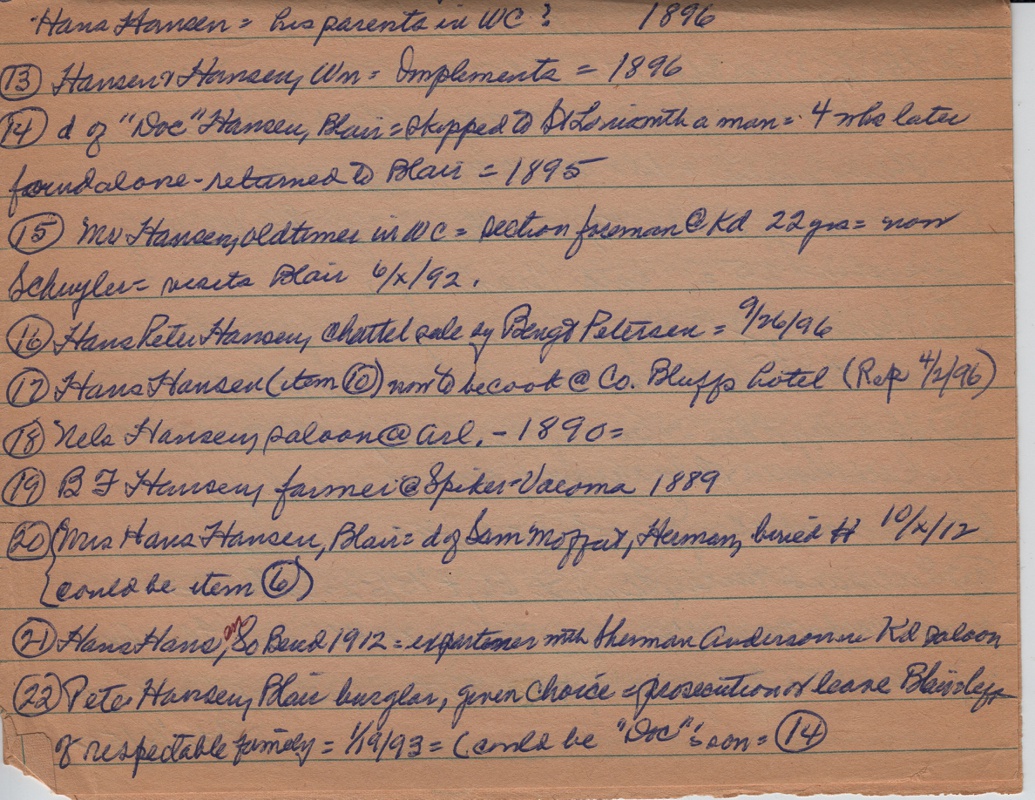 Hans Hansen = his parents in WC? 1896
(13) Hansen & Hansen, Wm = Implements = 1896
(14) d of "Doc" Hansen, Blair = skipped to St Louis with a man = 4 wks later
found alone - returned to Blair = 1895
(15) Mr Hansen, oldtimer in WC = section foreman @ Kd 22 yrs = now
Schuyler = visits Blair 6/x/92.
(16) Hans Peter Hansen, chattel sale by Bengt Petersen = 9/26/96
(17) Hans Hansen (item (10)) now to be cook @ Co. Bluffs hotel (Rep 4/2/96)
(18) Nels Hansen, saloon @ Arl. - 1890 =
(19) B F Hansen, farmer @ Spiker-Vacoma 1889
(20) {Mrs Hans Hansen, Blair = d of Sam Moffatt, Herman, buried H 10/x/12
{could be item (6))
(21) Hans Hansan, So Bend 1912 = expartner with Sherman Anderson in Kd saloon
(22) Pete Hansen, Blair burglar, given choice = prosecution or leave Blair = left
of respectable family = 1/19/93 = (could be "Doc"'s son = (14)